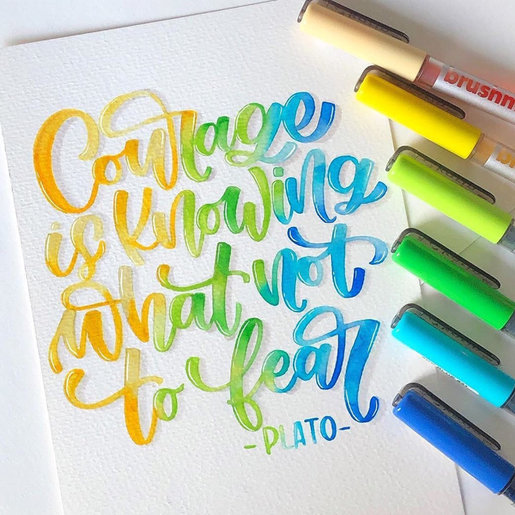 Courage
is knowing
what not
to fear
-PLATO-